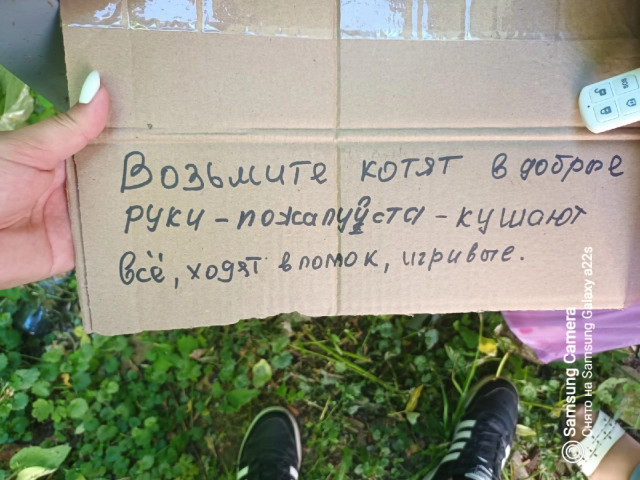 Возьмите котят в добрые
руки - пожалуйста - кушают
всё, ходят в лоток, игривые.
Samsung Camera
Снято на Samsung Galaxy a22s